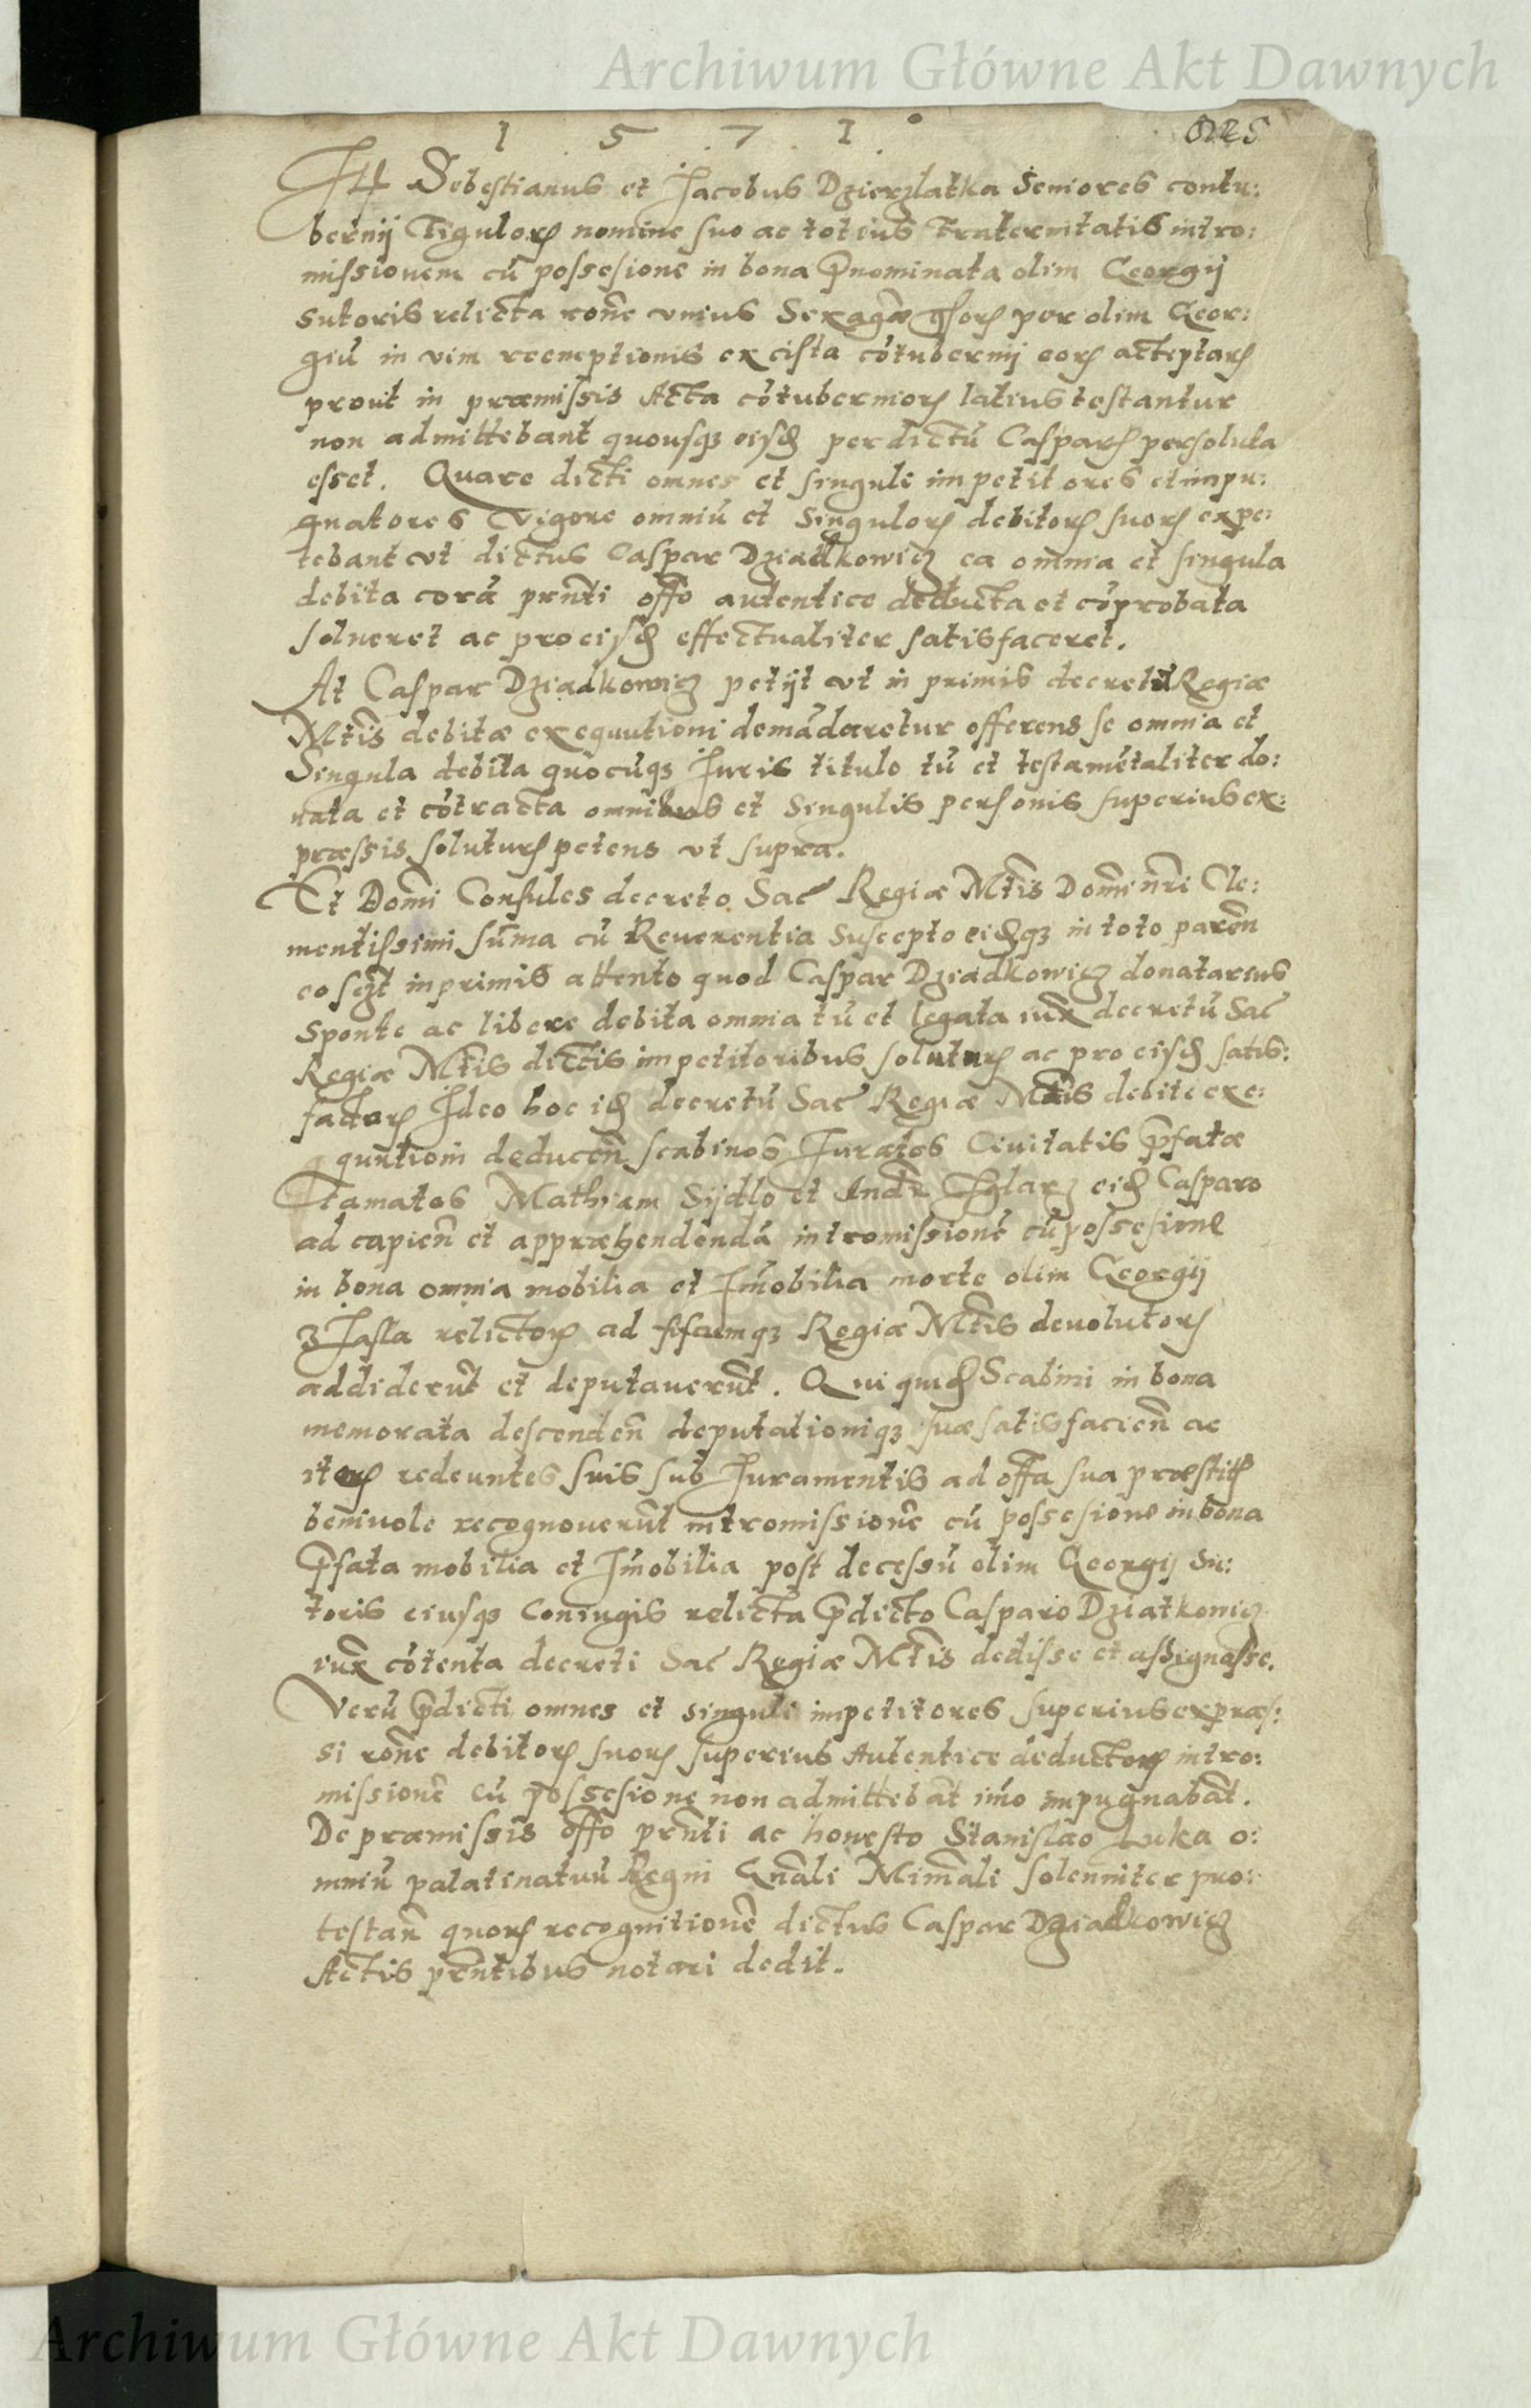 Archiwum Główne Akt Dawnych
1 5 7 1
Sebestianus et Jacobus Dzierzlatka Seniores contu:
bernij Figuloꝝ nomine suo ac totius Fraternitatis intro:
missionem cū possesione in bona p̄nominata olim Georgij
sutoris relicta rōne vnius Sexagēæ gꝛoꝝ per olim Geor:
giū in vim reemptionis ex cista cōtubernij eoꝝ acceptaꝝ
prout in præmissis Acta cōtubernioꝝ latius testantur
non admittebant quousqꝫ per dictū Casparꝝ persoluta
esset. Quare dicti omnes et singuli impetitores et impu:
gnatores vigore omniū et singuloꝝ debitoꝝ suoꝝ expe:
tebant vt dictus Caspar Dziadkowicz ea omnia et singula
debita corā prn̄ti offo autentice deducta et cōprobata
solueret ac pro eisd effectualiter satisfaceret.
At Caspar Dziadkowicz petijt vt in primis decretū Regiæ
Mtīs debitæ exequutioni demādaretur offerens se omnia et
Singula debita quocūqꝫ Juris titulo tū et testamētaliter do:
nata et cōtracta omnibus et singulis personis superius ex:
præssis soluturꝝ petens vt supra.
Et Domī Consules decreto Sac Regiæ Mtīs Domī nrī Cle:
mentissimi sūma cū Reuerentia suscepto eidqꝫ in toto parēn
eo inprimis attento quod Caspar Dziadkowicz donatarius
sponte ac libere debita omnia tū et legata iux decretū Sac
Regiæ Mtīs dictis impetitoribus soluturꝝ ac pro eisd satis:
facturꝝ Ideo hoc id decretū Sac Regiæ Mtīs debite exe:
quutioni deducen̄ scabinos Juratos Ciuitatis p̄fatæ
famatos Mathiam Sijdlo et Andr Iglarz eid Casparo
ad capien̄ et appræhendendā intromissionē cū possesione
in bona omnia mobilia et Im̄obilia morte olim Georgij
z Jasla relictoꝝ ad fiscumqꝫ Regiæ Mtīs deuolutoꝝ
addiderūt et deputauerūt. Qui quid Scabini in bona
memorata descenden̄ deputationiqꝫ suæ satisfacien̄ ac
iteꝝ redeuntes suis sub Juramentis ad offa sua præstitꝭ
beniuole recognouerūt intromissionē cū possesione in bona
p̄fata mobilia et Im̄obilia post decessū olim Georgij Su:
toris eiusqꝫ Coniugis relicta p̄dicto Casparo Dziatkowicz
iux cōtenta decreti Sac Regiæ Mtīs dedisse et assignasse.
Verū p̄dicti omnes et singuli impetitores superius expræs:
si rōne debitoꝝ suoꝝ superius Autentice deductoꝝ intro:
missionē cū possesione non admittebāt im̄o impugnabāt.
De præmissis offo prn̄ti ac honesto Stanislao Luka o:
mniū palatinatuū Regni Gn̄ali Minr̄ali solenniter pro:
testan̄ quoꝝ recognitionē dictus Caspar Dziadkowicz
Actis prn̄tibus notari dedit.
Archiwum Główne Akt Dawnych